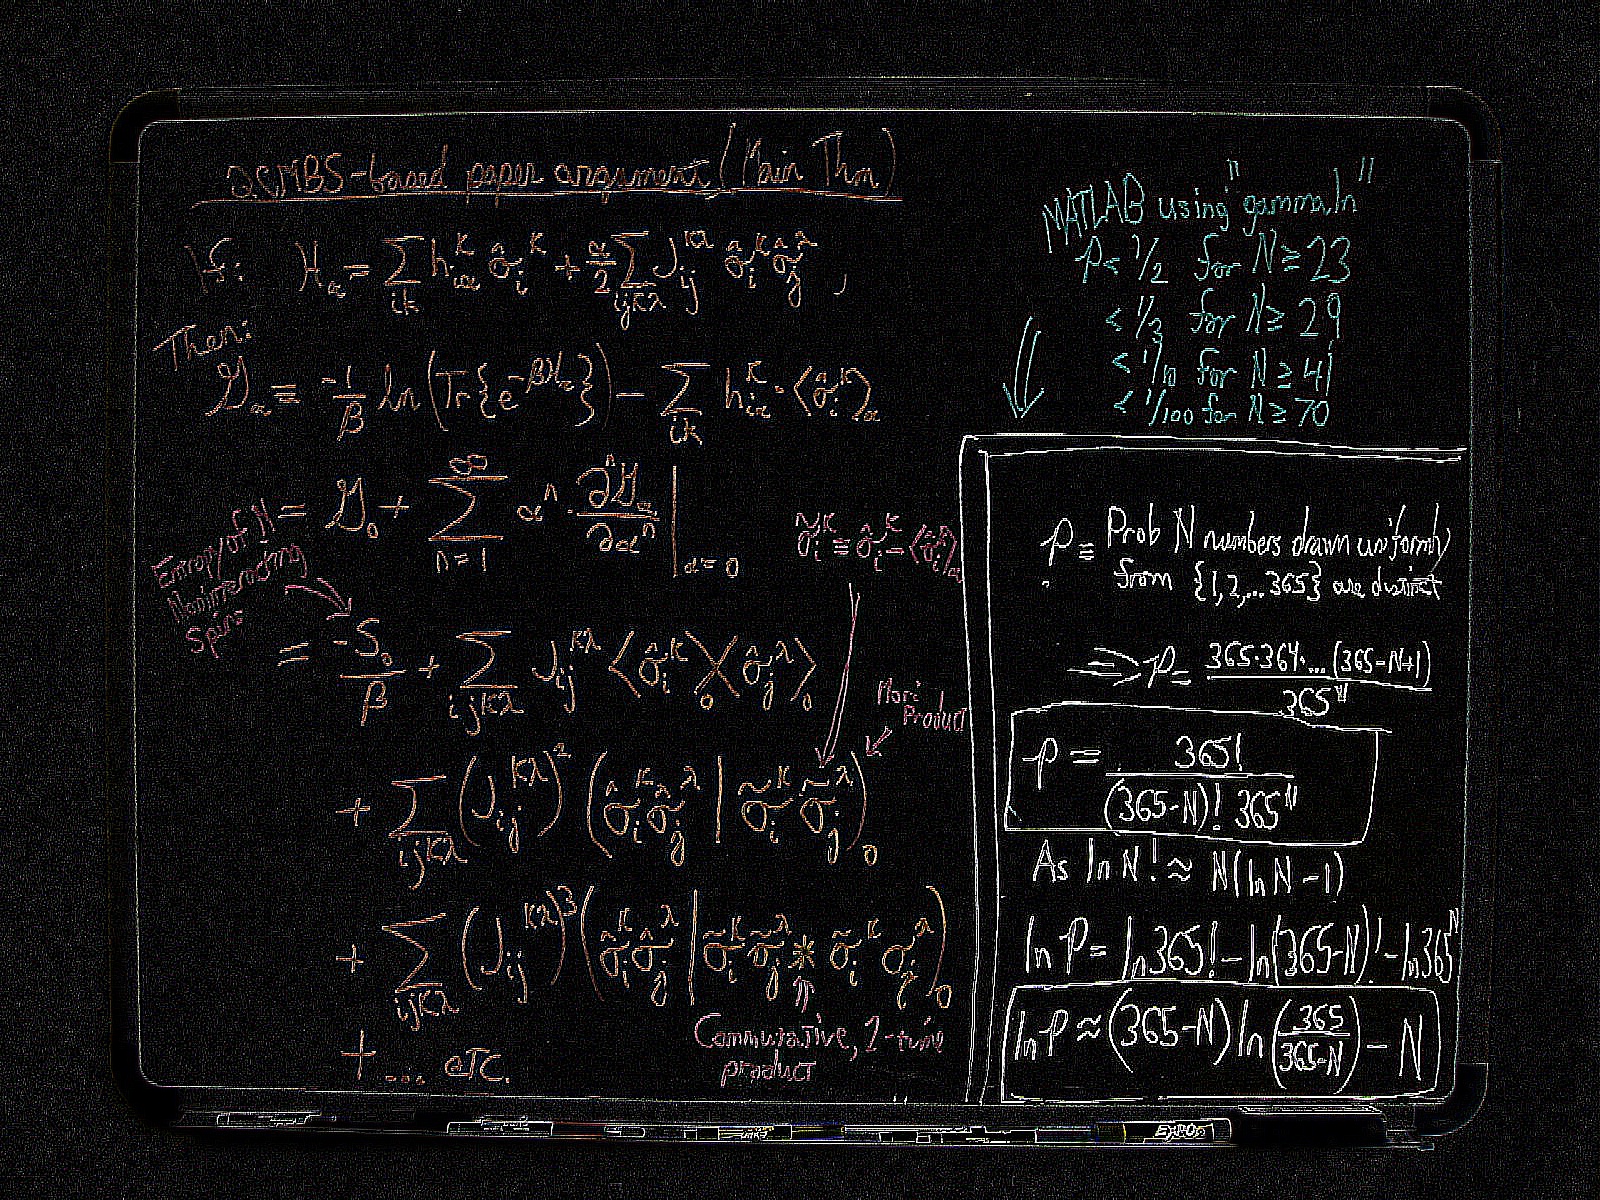 2CMBS-based paper argument (Main Thm)
If: H_α = Σ_{ik} h_{iα}^κ σ̂_i^κ + α/2 Σ_{ijκλ} J_{ij}^{κλ} σ̂_i^κ σ̂_j^λ ,
Then:
G_α = -1/β ln(Tr{e^{-βH_α}}) - Σ_{ik} h_{iα}^κ · ⟨σ̂_i^κ⟩_α
= G_0 + Σ_{n=1}^∞ α^n · ∂^n G_α / ∂α^n |_{α=0}
Entropy of N
Noninteracting
Spins
σ̃_i^κ ≡ σ̂_i^κ - ⟨σ̂_i^κ⟩_α
= -S_0/β + Σ_{ijκλ} J_{ij}^{κλ} ⟨σ̂_i^κ⟩_0 ⟨σ̂_j^λ⟩_0
Mori
Product
+ Σ_{ijκλ} (J_{ij}^{κλ})^2 (σ̂_i^κ σ̂_j^λ | σ̃_i^κ σ̃_j^λ)_0
+ Σ_{ijκλ} (J_{ij}^{κλ})^3 (σ̂_i^κ σ̂_j^λ | σ̃_i^κ σ̃_j^λ * σ̃_i^κ σ_j^λ)_0
Commutative, 2-time
product
+ ... etc.
MATLAB using "gammaln"
p < 1/2 for N ≥ 23
< 1/3 for N ≥ 29
< 1/10 for N ≥ 41
< 1/100 for N ≥ 70
p ≡ Prob N numbers drawn uniformly
from {1,2,...365} are distinct
⇒ p = 365·364·...(365-N+1) / 365^N
p = 365! / (365-N)! 365^N
As ln N! ≈ N(ln N - 1)
ln p = ln 365! - ln(365-N)! - ln 365^N
ln p ≈ (365-N) ln(365/(365-N)) - N
EXPO